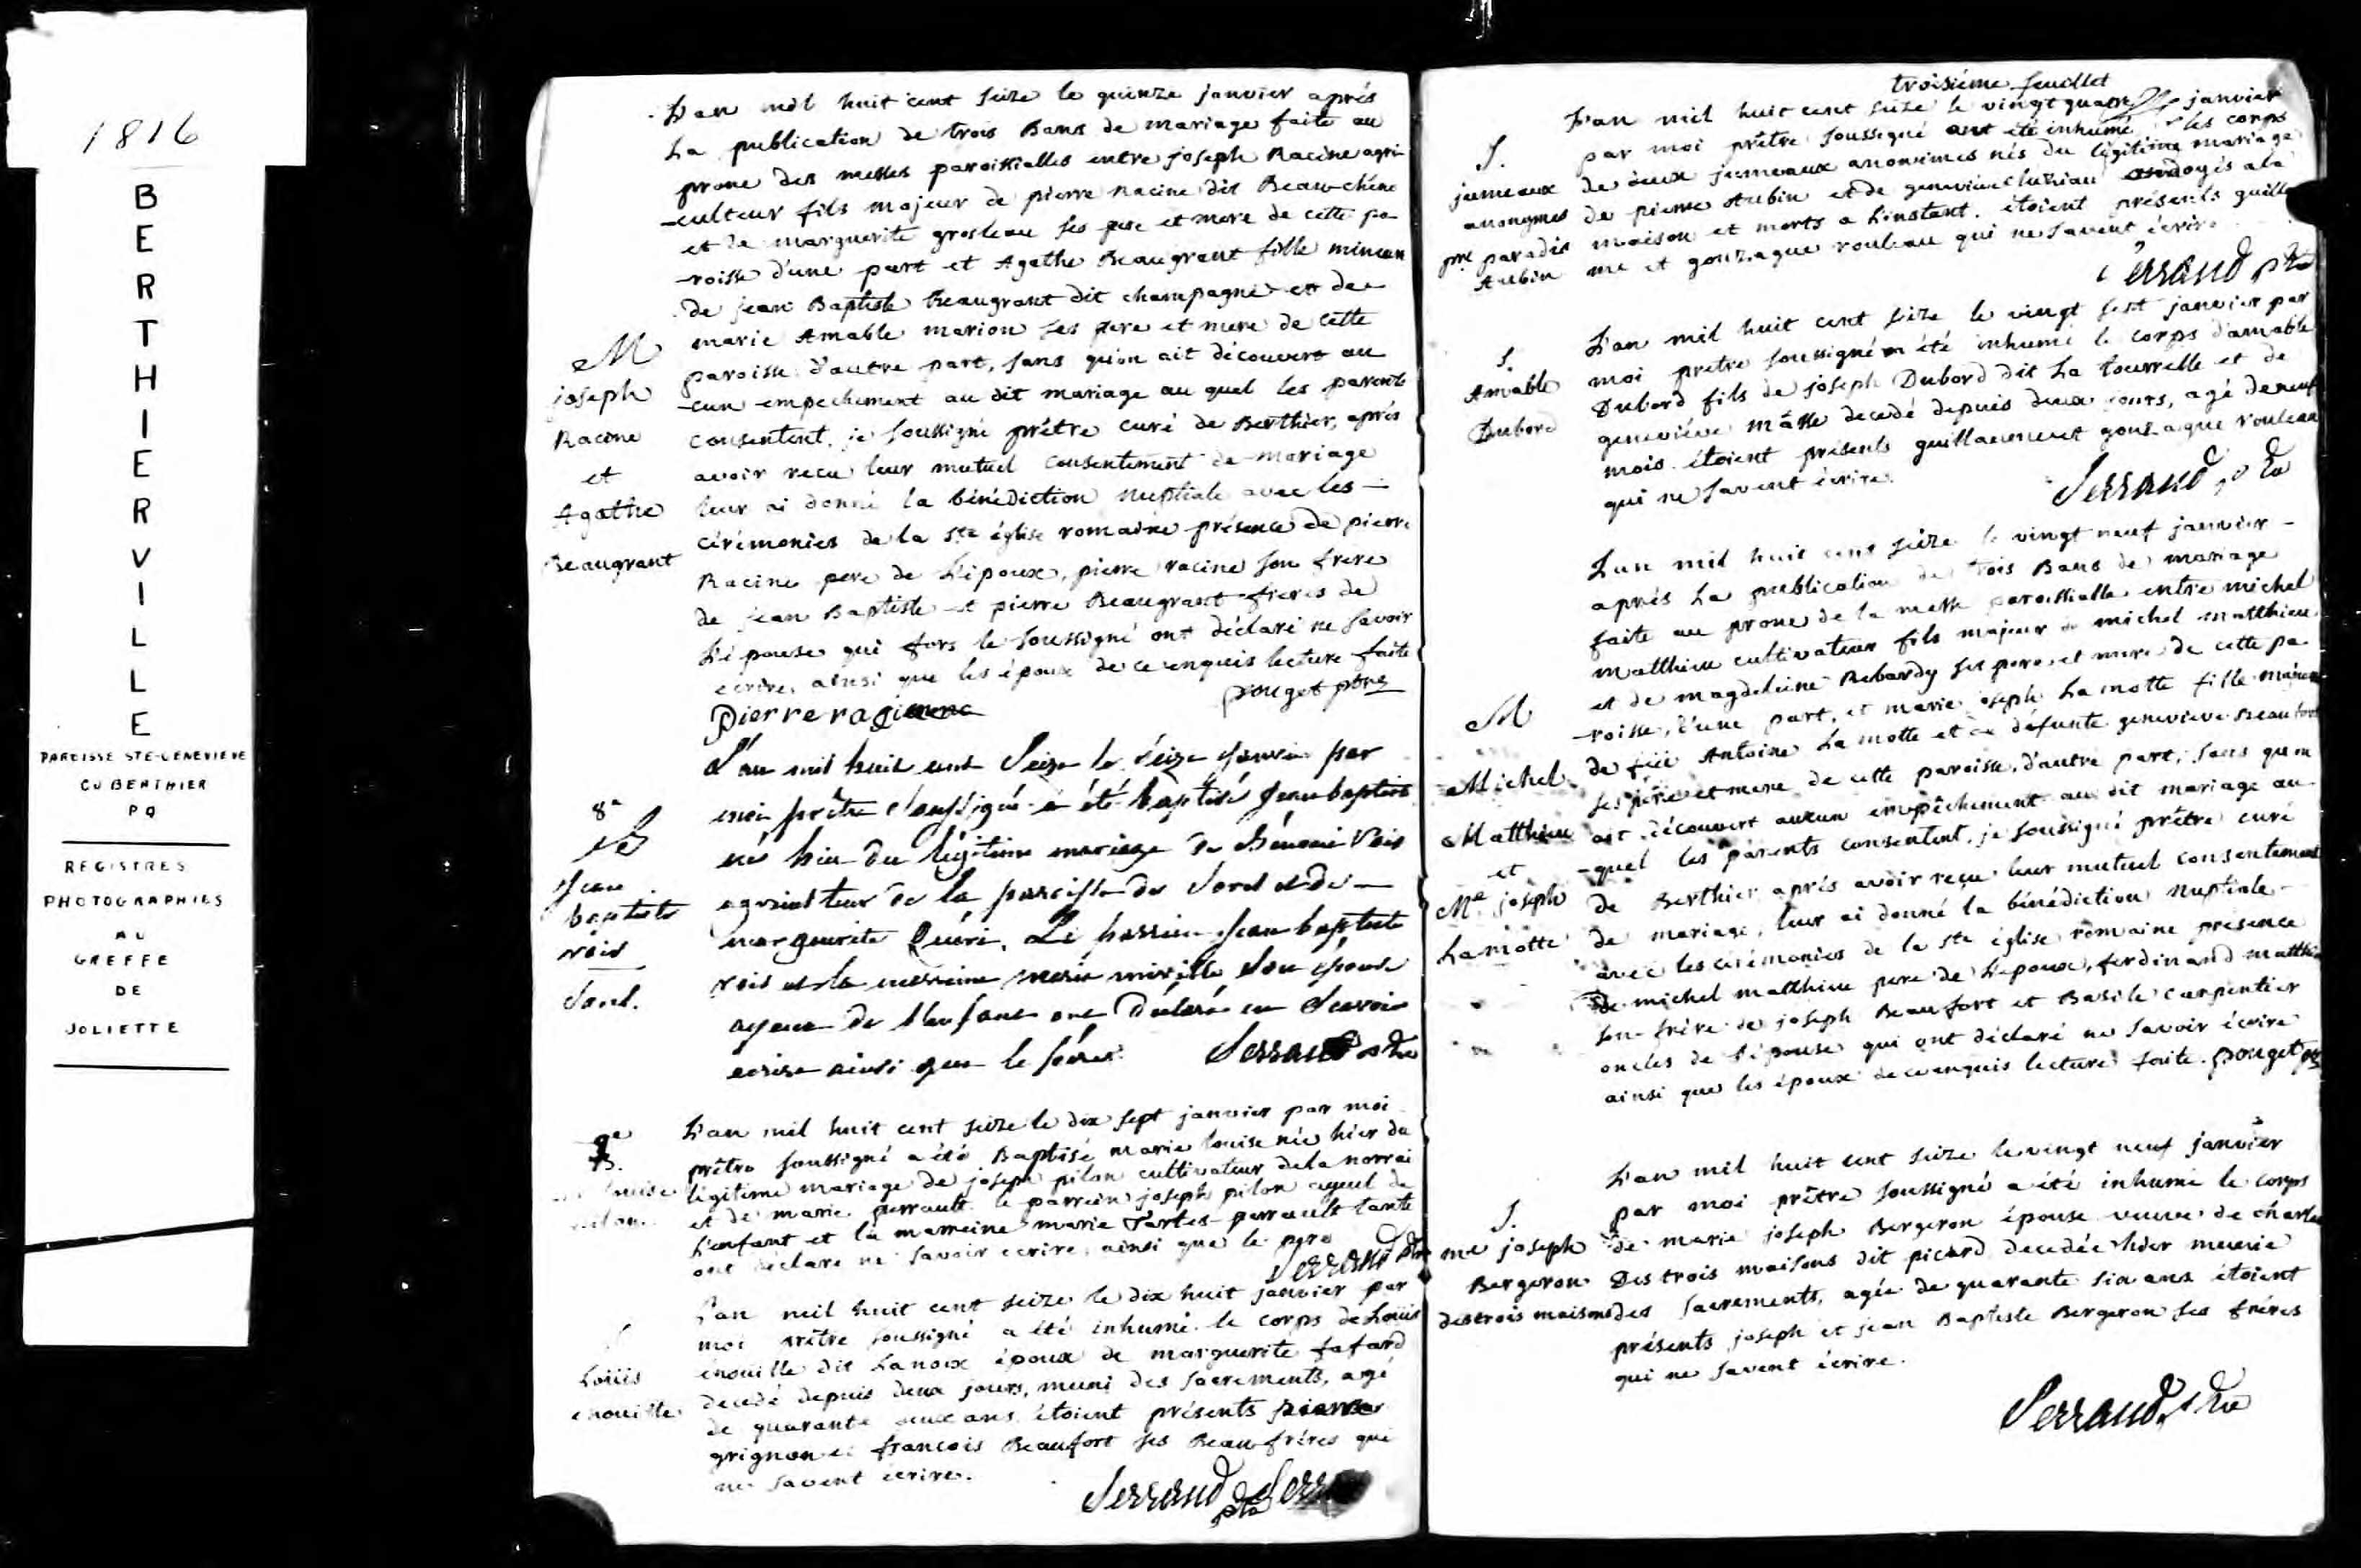 1816
BERTHIERVILLE
PAROISSE STE-GENEVIEVE
CU BERTHIER
P Q
REGISTRES
PHOTOGRAPHIES
AU
GREFFE
DE
JOLIETTE
L'an mil huit cent seize le quinze janvier après
La publication de trois Bans de mariage faite au
prone des messes paroissialles entre joseph Racine agri-
-culteur fils majeur de pierre racine dit Beauchêne
et de marguerite grosleau ses pere et mere de cette pa-
-roisse d'une part et Agathe Beaugrant fille mineure
de jean Baptiste Beaugrant dit champagne et de
marie Amable marion ses pere et mere de cette
paroisse d'autre part, sans qu'on ait découvert au-
-cun empechement au dit mariage au quel les parents
consentent, je soussigné prêtre curé de Berthier, après
avoir recu leur mutuel consentement de mariage
leur ai donné la bénédiction nuptiale avec les
cérémonies de la ste église romaine présence de pierre
Racine pere de L'époux, pierre racine son frere
de jean Baptiste et pierre Beaugrant freres de
L'épouse qui fors le soussigné ont déclaré ne savoir
ecrire, ainsi que les époux de ce enquis lecture faite
pouget ptre
Pierre racine
M
joseph
Racine
et
Agathe
Beaugrant
L'an mil huit cent Seize le Seize janvier par
moi prêtre Soussigné a été baptisé jean baptiste
né hier du légitime mariage de Bénoni Rois
agriculteur de la paroisse de Sorel et de
marguerite . Le parrain jean baptiste
rois et la marraine marie son épouse
ayeux de l'enfant ont Déclaré ne Scavoir
ecrire ainsi que le pere. Serrand ptre
8e
B
jean
baptiste
rois
Sorel.
L'an mil huit cent seize le dix sept janvier par moi
prêtre soussigné a été Baptisé marie louise née hier du
légitime mariage de joseph pilon cultivateur de la norrai
et de marie perrault. le parrein joseph pilon ayeul de
L'enfant et la marreine marie perrault tante
ont déclaré ne savoir ecrire, ainsi que le pere
Serrand ptre
9e
B.
louise
L'an mil huit cent seize le dix huit janvier par
moi prêtre soussigné a été inhumé le corps de Louis
enouille dit Lanoix époux de marguerite fafard
decedé depuis deux jours, muni des sacrements, agé
de quarante deux ans. étoient présents pierre
grignon et francois Beaufort ses Beau-frères qui
ne savent écrire.
Serrand ptre
S
Louis
enouille
troisiéme feuillet
L'an mil huit cent seize le vingt quatre janvier
par moi prêtre soussigné ont été inhumé les corps
de deux jumeaux anonimes nés du légitime mariage
de pierre Aubin et de genevieve ondoyés a la
maison et morts a L'instant. étoient présents guillau
me et gonzague rouleau qui ne savent écrire
Serrand ptre
S.
jumeaux
anonymes
pre paradis
Aubin
L'an mil huit cent seize le vingt sept janvier par
moi pretre soussigné a été inhumé le corps d'amable
Dubord fils de joseph Dubord dit La tourrelle et de
geneviéve mâsse decedé depuis deux jours, agé de neuf
mois. étoient présents guillaume et gonzague rouleau
qui ne savent écrire.
Serrand ptre
S.
Amable
Dubord
L'an mil huit cent seize le vingt neuf janvier
après La publication de trois Bans de mariage
faite au prone de la messe paroissialle entre michel
matthieu cultivateur fils majeur de michel matthieu
et de magdeleine Rebardy ses pere et mere de cette pa-
-roisse, d'une part, et marie joseph Lamotte fille mineure
de feu Antoine Lamotte et de défunte genevieve Beaufort
ses pere et mere de cette paroisse, d'autre part, sans qu'on
ait découvert aucun empêchement au dit mariage au
-quel les parents consentent, je soussigné prêtre curé
de Berthier après avoir reçu leur mutuel consentement
de mariage, leur ai donné la bénédiction nuptiale
avec les cérémonies de la ste église romaine présence
de michel matthieu pere de L'époux, ferdinand matthieu
son frère de joseph Beaufort et Basile carpentier
oncles de L'épouse qui ont déclaré ne savoir écrire
ainsi que les époux de ce enquis lecture faite. pouget ptre
M
Michel
Matthieu
et
Me joseph
Lamotte
L'an mil huit cent seize le vingt neuf janvier
par moi prêtre soussigné a été inhumé le corps
de marie joseph Bergeron épouse veuve de charles
Des trois maisons dit picard decedée hier munie
des sacrements, agée de quarante six ans étoient
présents joseph et jean Baptiste Bergeron ses fréres
qui ne savent écrire.
Serrand ptre
S.
me joseph
Bergeron
des trois maisons